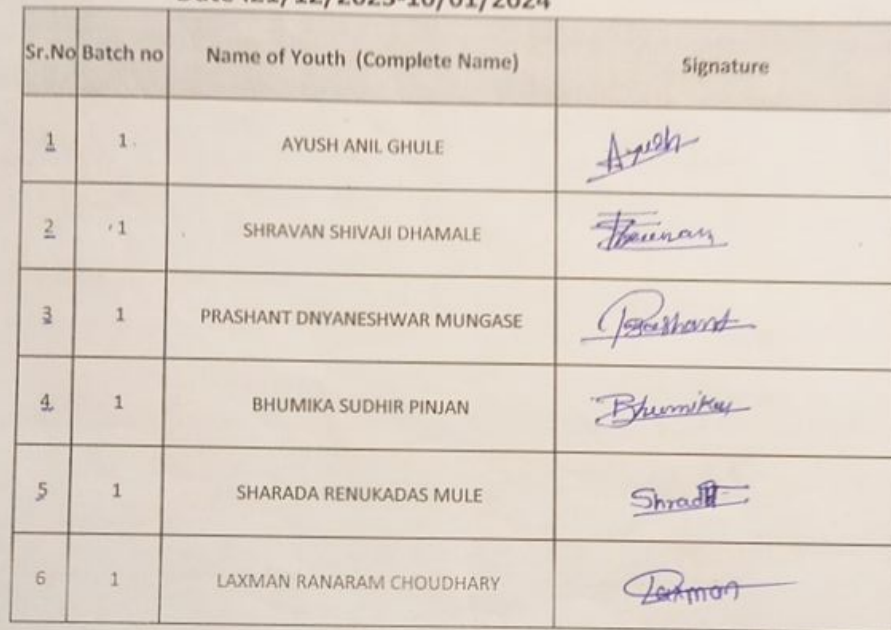 Date :21/12/2023-10/01/2024
Sr.No Batch no Name of Youth (Complete Name) Signature
1 1 AYUSH ANIL GHULE Ayush
2 1 SHRAVAN SHIVAJI DHAMALE
3 1 PRASHANT DNYANESHWAR MUNGASE Prashant
4 1 BHUMIKA SUDHIR PINJAN Bhumika
5 1 SHARADA RENUKADAS MULE
6 1 LAXMAN RANARAM CHOUDHARY Laxman